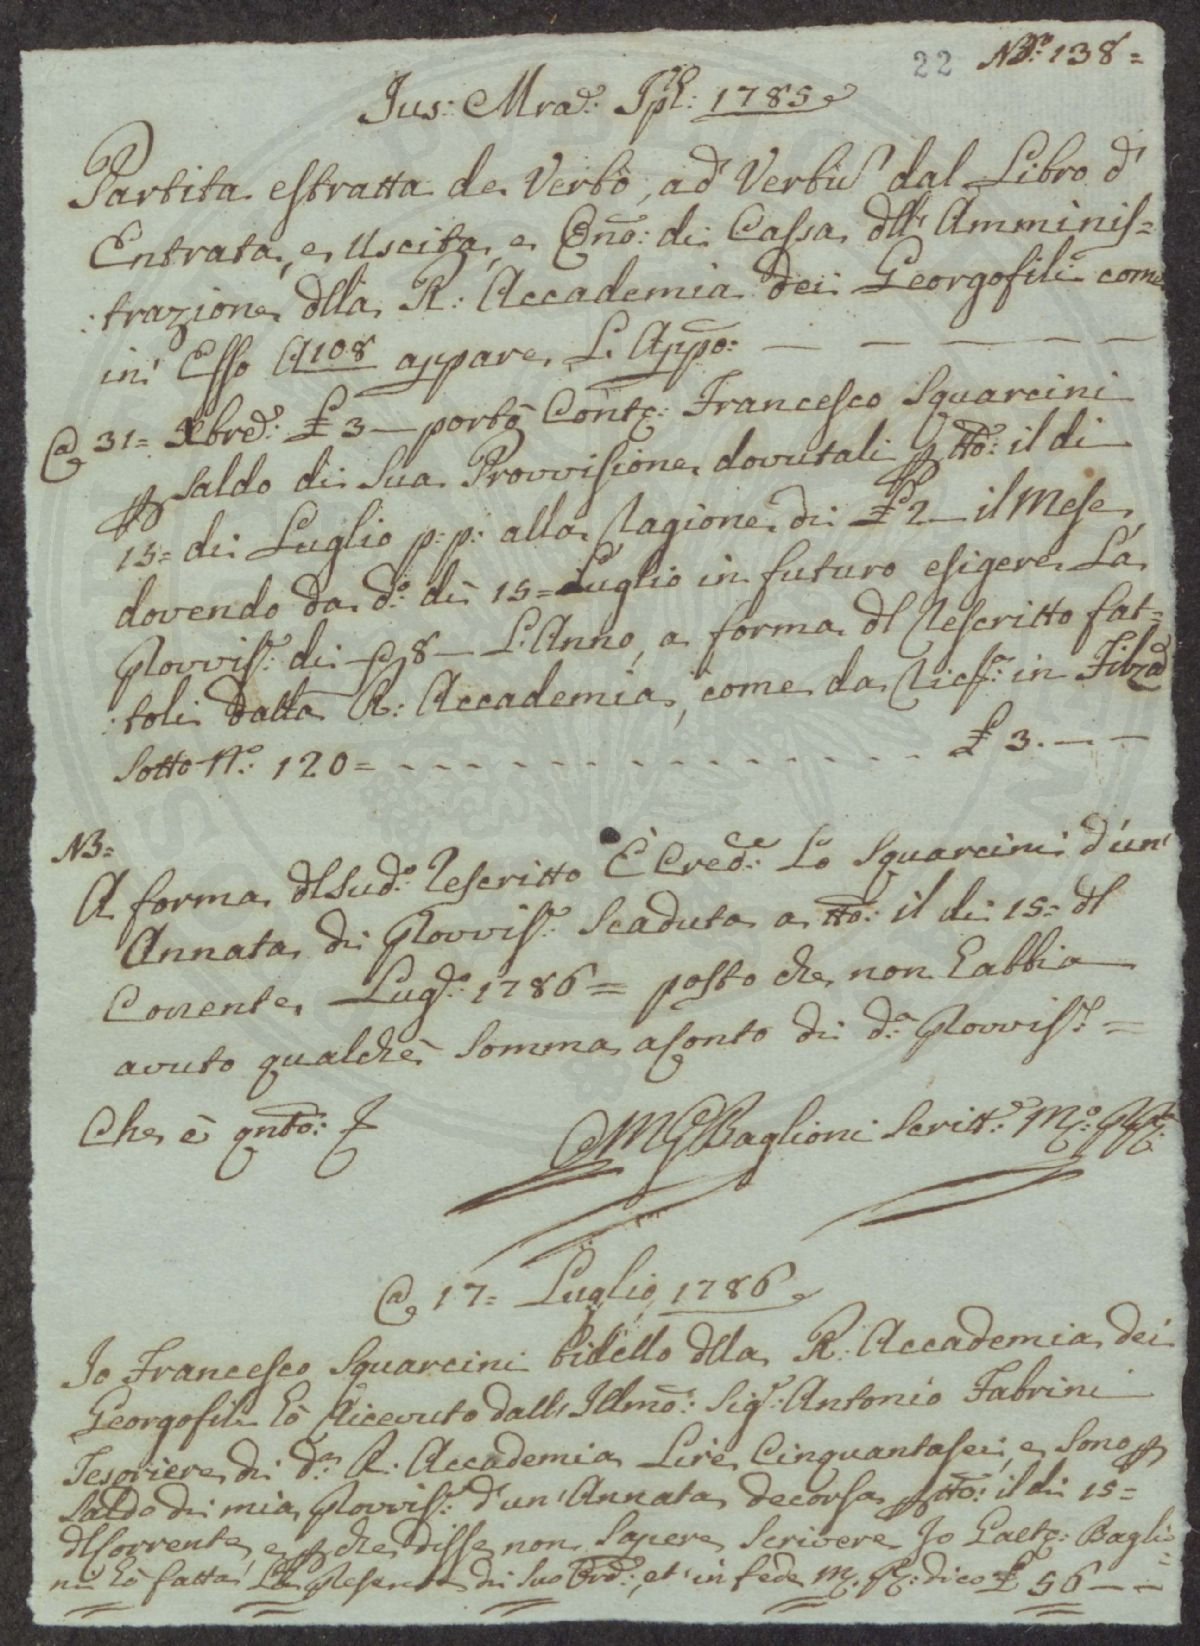 22 N.º 138=
Jus: Mrad: Jpl: 1785
Partita estratta de Verbo, ad Verbũ dal Libro d'
Entrata, e Uscita, e di Cassa dll' Amminis=
:trazione dlla R: Accademia dei Georgofili come
in' Esso A 108 appare L' Appo: — — — — —
A 31= Xbre: £ 3 — portò Conti: Francesco Squarcini
p saldo di Sua Provvisione dovutali p tto: il di
15= di Luglio p: p: alla ragione di £ 2 — il Mese,
dovendo da d.º di 15= Luglio in futuro esigere La
Provvis.e di 8 — L'Anno, a forma dl Rescritto fat=
:toli dalla R: Accademia, come da in Filza
Sotto N.º: 120 = - - - - - - - - - - - - £ 3. — —
NB=
A forma dl Sud.º Rescritto È Cred.e: Lo Squarcini d'un'
Annata di Provvis.e Scaduta a tto: il di 15= dl
Corrente Lugº: 1786 = posto che non habbia
avuto qualche Somma a Conto di d.a Provvis.e =
Che è qnto: £
G Baglioni Scritt.e Mº:
A 17= Luglio 1786
Io Francesco Squarcini bidello dlla R: Accademia dei
Georgofili hò Ricevuto dall' Illmo: Sig.r Antonio Fabrini
Tesoriere di d.a R: Accademia Lire Cinquantasei, e sono p
Saldo di mia Provvis.e d'un' Annata decorsa p tto: il di 15=
dl Corrente, e p che disse non Sapere Scrivere Io Gaet: Baglio=
ni hò fatta La Presente di Suo Ord.e, et in fede M. P.: dico £ 56 — —